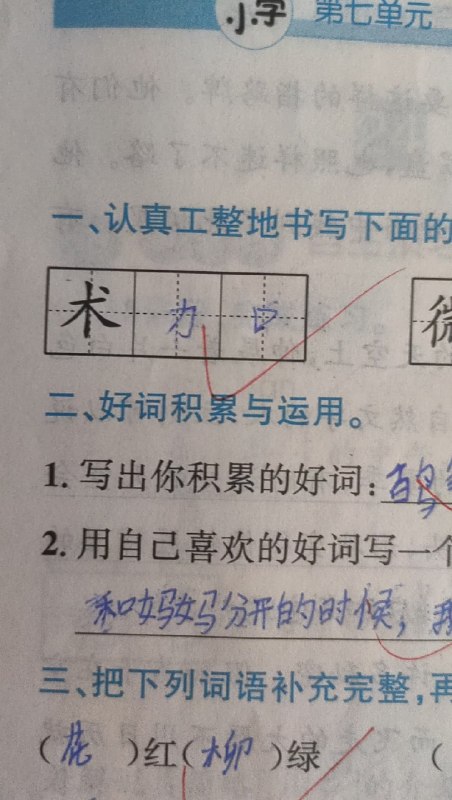 小学 第七单元
一、认真工整地书写下面的
术 力 口 微
二、好词积累与运用。
1. 写出你积累的好词：
2. 用自己喜欢的好词写一个
和妈妈分开的时候，我
三、把下列词语补充完整，再
（花）红（柳）绿 （